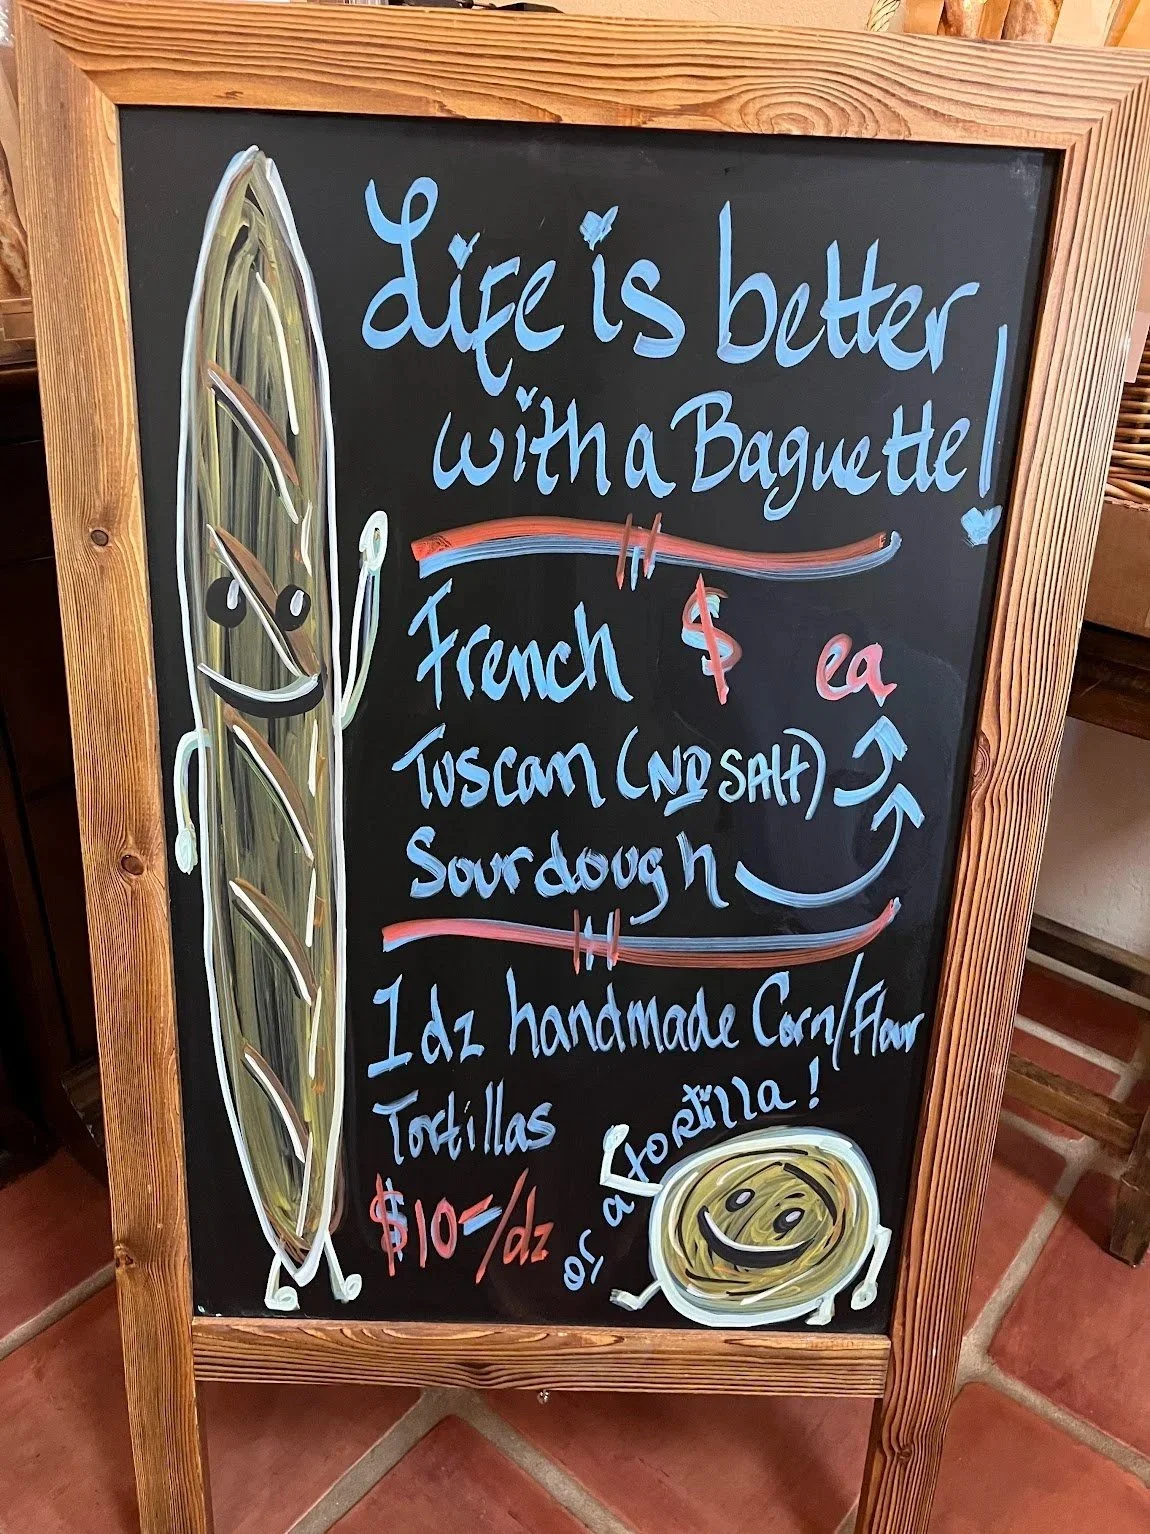 Life is better
with a Baguette!
French $ ea
Tuscan (NO SALT)
Sourdough
1 dz handmade Corn/Flour
Tortillas
$10-/dz
or a tortilla!